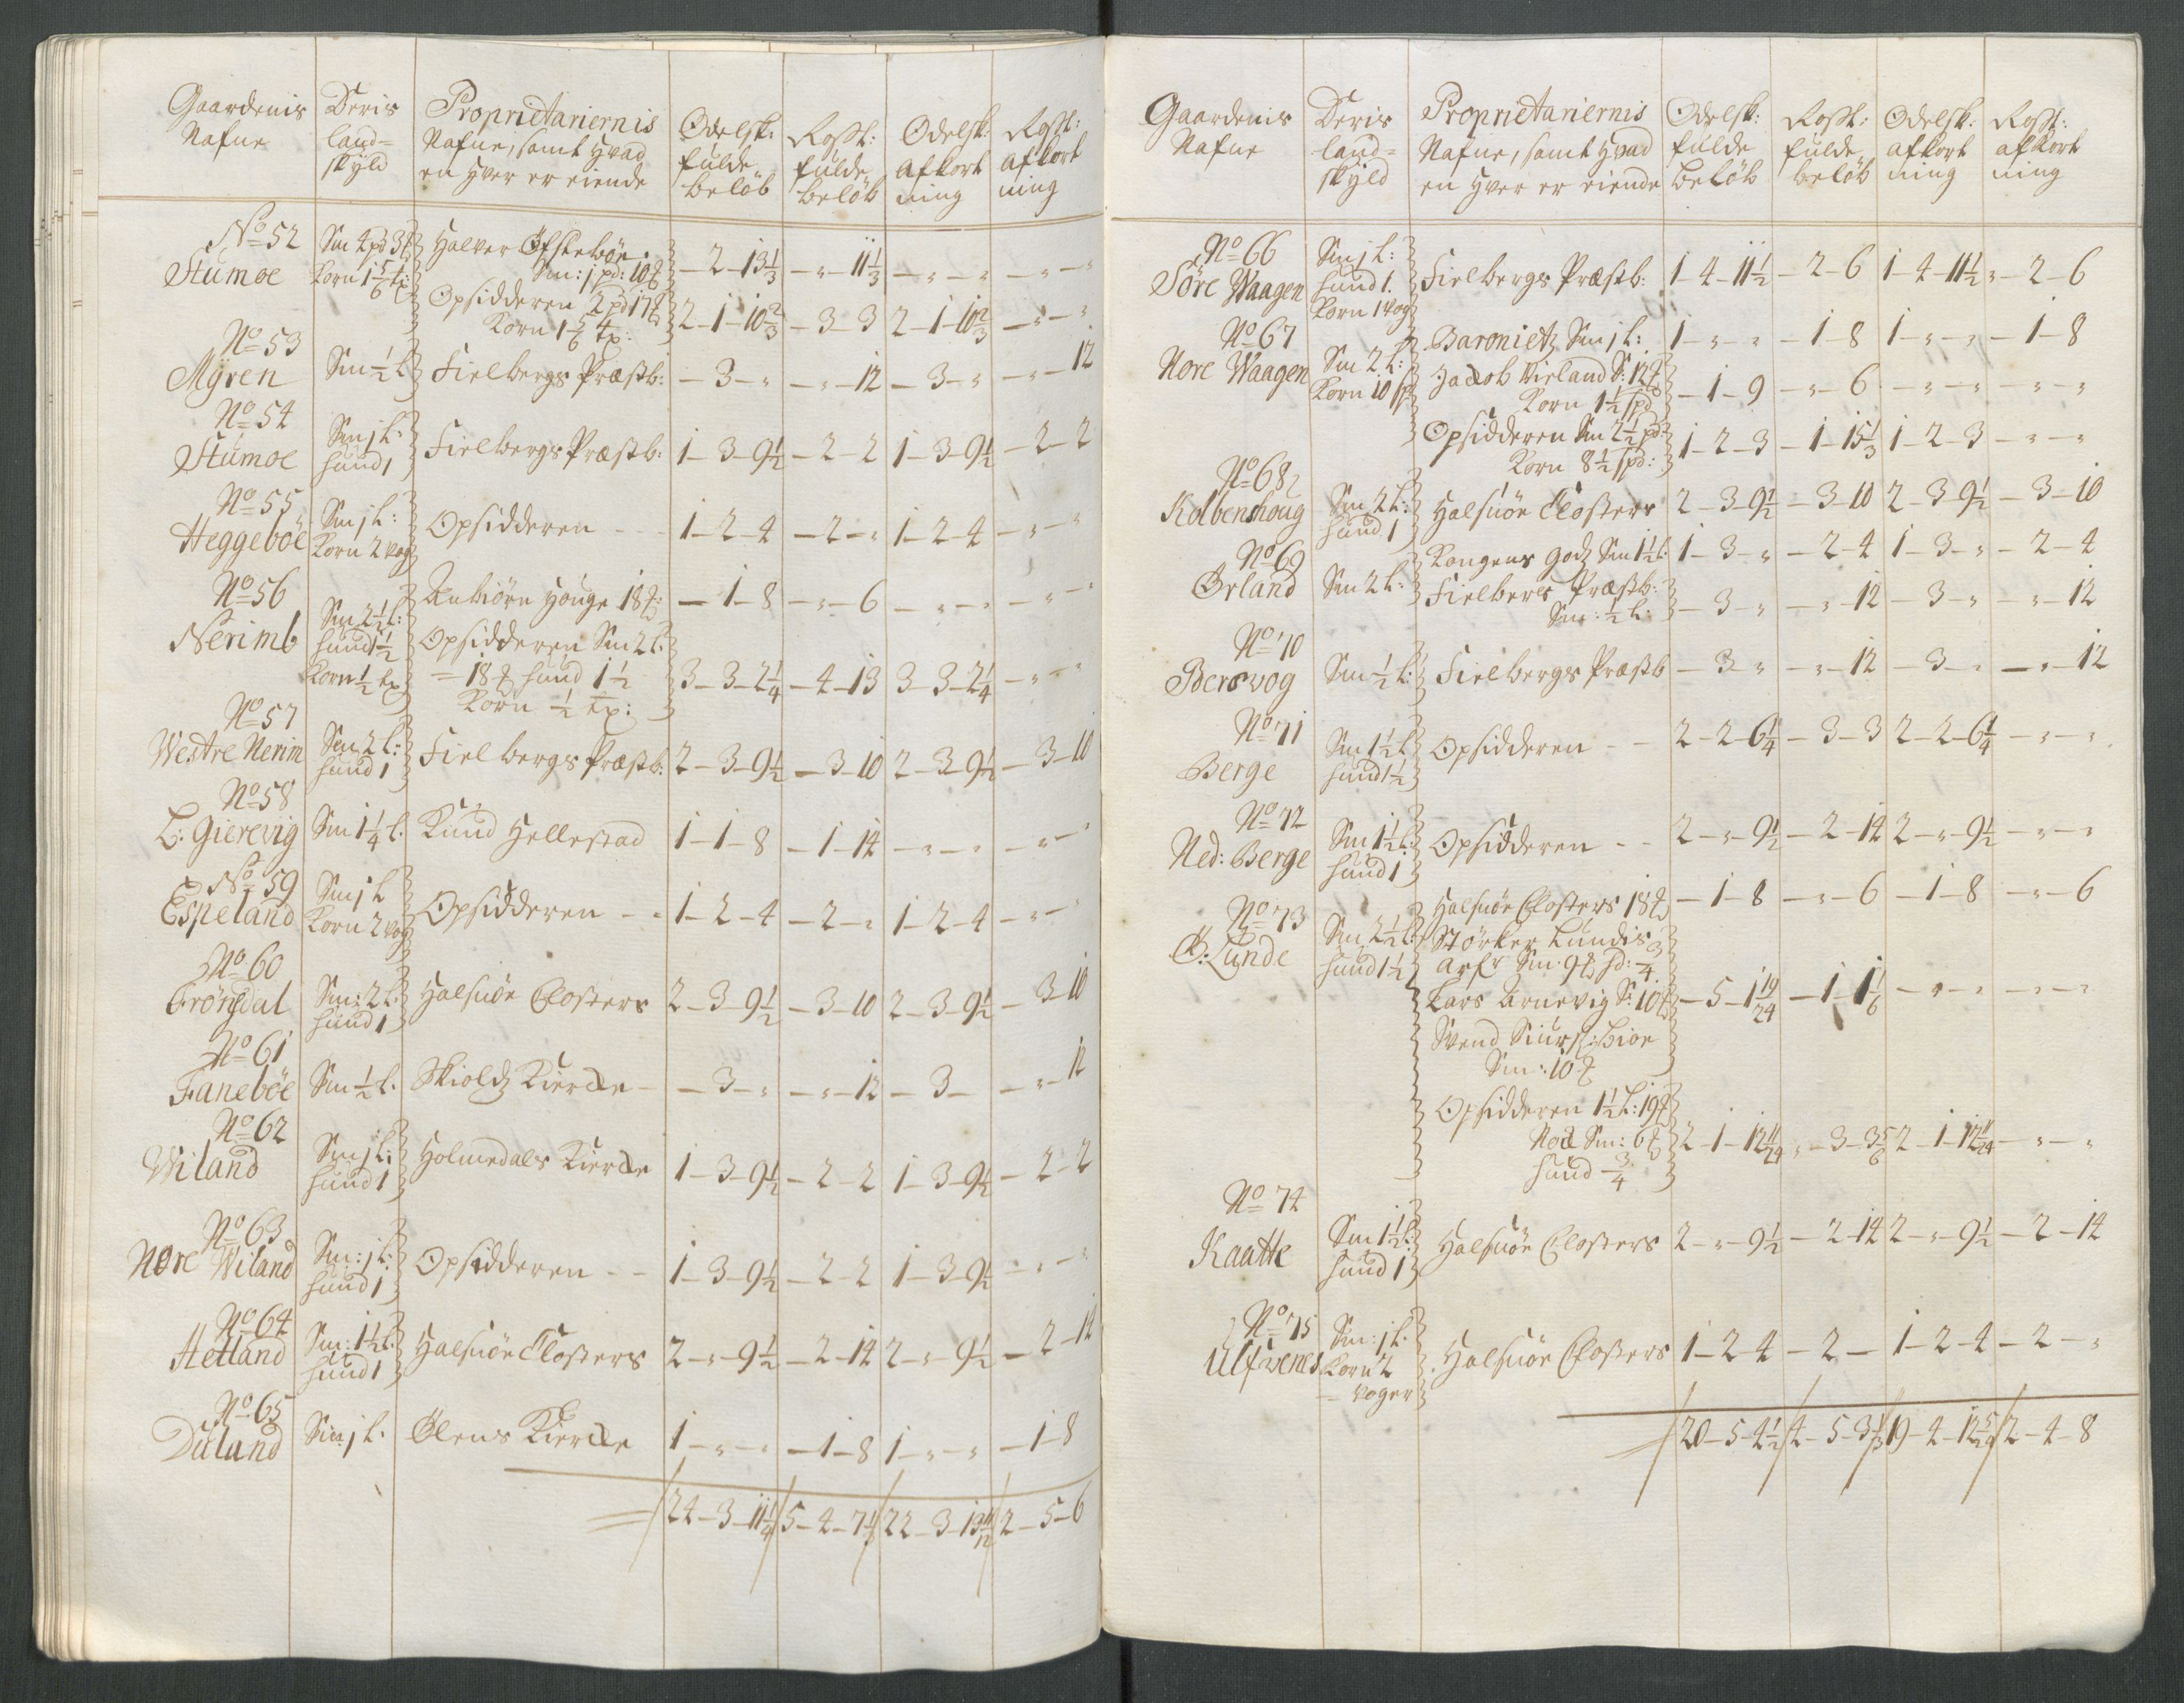 Gaardenis Nafne | Deris land= skÿld | Proprietariernis Nafne, samt hvad en hver er eiende | Odelsk: fulde beløb | Rosst: fulde beløb | Odelsk: afkort ning | Rosst: afkort ning
No 52 Stumoe | Sm 4 pd 3 Korn 1 5/6 tp: | Halvor Øfstebøe Sm: 1 pd: 10 | - 2 - 13 1/3 | - " - 11 1/3 | - " - " | - " - "
Opsidderen 2 pd 17 Korn 1 5/6 tp: | 2 - 1 - 10 2/3 | - 3 - 3 | 2 - 1 - 10 2/3 | - " - "
No 53 Mÿren | Sm 1/2 l | Fielbergs Præstb: | - 3 - " | - " - 12 | - 3 - " | - " - 12
No 54 Stumoe | Sm 1 l: hund 1 | Fielbergs Præstb: | 1 - 3 - 9 1/2 | - 2 - 2 | 1 - 3 - 9 1/2 | - 2 - 2
No 55 Heggebøe | Sm 1 l: Korn 2 vog | Opsidderen - - | 1 - 2 - 4 | - 2 - " | 1 - 2 - 4 | - " - "
No 56 Nerimb | Sm 2 1/2 l: hund 1 1/2 Korn 1/2 tp | Anbiørn Houge 18 | - 1 - 8 | - " - 6 | - " - " | - " - "
Opsidderen Sm 2 l: = 18 hund 1 1/2 Korn 1/2 tp: | 3 - 3 - 2 1/4 | - 4 - 13 | 3 - 3 - 2 1/4 | - " - "
No 57 Westre Nerim | Sm 2 l: hund 1 | Fielbergs Præstb: | 2 - 3 - 9 1/2 | - 3 - 10 | 2 - 3 - 9 1/2 | - 3 - 10
No 58 L: Gierevig | Sm 1 1/4 l. | Knud Hellestad | 1 - 1 - 8 | - 1 - 14 | - " - " | - " - "
No 59 Espeland | Sm 1 l Korn 2 vog | Opsidderen - - | 1 - 2 - 4 | - 2 - " | 1 - 2 - 4 | - " - "
No 60 Frøngdal | Sm: 2 l: hund 1 | Halsnøe Closters | 2 - 3 - 9 1/2 | - 3 - 10 | 2 - 3 - 9 1/2 | - 3 - 10
No 61 Fanebøe | Sm 1/2 l. | Skiold Kierche - | - 3 - " | - " - 12 | - 3 - | - " - 12
No 62 Wiland | Sm 1 l: hund 1 | Holmedals Kierche | 1 - 3 - 9 1/2 | - 2 - 2 | 1 - 3 - 9 1/2 | - 2 - 2
No 63 Nore Wiland | Sm: 1 l: hund 1 | Opsidderen - - | 1 - 3 - 9 1/2 | - 2 - 2 | 1 - 3 - 9 1/2 | - " - "
No 64 Hetland | Sm: 1 1/2 l. hund 1 | Halsnøe Closters | 2 - " - 9 1/2 | - 2 - 14 | 2 - " - 9 1/2 | - 2 - 14
No 65 Duland | Sm 1 l. | Ølens Kierche | 1 - " - " | - 1 - 8 | 1 - " - " | - 1 - 8
24 - 3 - 11 1/4 | 5 - 4 - 7 1/3 | 22 - 3 - 13 11/12 | 2 - 5 - 6
Gaardenis Nafne | Deris land= skÿld | Proprietariernis Nafne, samt hvad en hver er eiende | Odelsk: fulde beløb | Rosst: fulde beløb | Odelsk: afkort ning | Rosst: afkort ning
No 66 Søre Waagen | Sm 1 l: hund 1. Korn 1 vog | Fielbergs Præstb: | 1 - 4 - 11 1/2 | - 2 - 6 | 1 - 4 - 11 1/2 | " - 2 - 6
No 67 Nore Waagen | Sm 2 l: Korn 10 sp | Baroniet Sm 1 l: | 1 - " - " | - 1 - 8 | 1 - " - " | - 1 - 8
Jacob Virland S: 12 Korn 1 1/2 spd | - 1 - 9 | - " - 6 | - " - " | - " - "
Opsidderen Sm 2 1/2 pd: Korn 8 1/2 spd: | 1 - 2 - 3 | - 1 - 15 1/3 | 1 - 2 - 3 | - " - "
No 68 Kolbenshoug | Sm 2 l: hund 1 | Halsnøe Closters | 2 - 3 - 9 1/2 | - 3 - 10 | 2 - 3 - 9 1/2 | - 3 - 10
No 69 Ørland | Sm 2 l: | Kongens god Sm 1 1/2 l: | 1 - 3 - " | - 2 - 4 | 1 - 3 - " | - 2 - 4
Fielbergs Præstb: Sm: 1/2 l: | - 3 - " | - " - 12 | - 3 - " | - " - 12
No 70 Bersvog | Sm 1/2 l: | Fielbergs Præstb | - 3 - " | - " - 12 | - 3 - " | - " - 12
No 71 Berge | Sm 1 1/2 l hund 1 1/2 | Opsidderen - - | 2 - 2 - 6 1/4 | - 3 - 3 | 2 - 2 - 6 1/4 | - " - "
No 72 Ned: Berge | Sm 1 1/2 l: hund 1 | Opsidderen - - | 2 - " - 9 1/2 | - 2 - 14 | 2 - " - 9 1/2 | - " - "
No 73 Ø: Lunde | Sm 2 1/2 l: hund 1 1/2 | Halsnøe Closters 18 | - 1 - 8 | - " - 6 | - 1 - 8 | - " - 6
Størker Lundis arfr Sm. 9 hd: 3/4
Lars Arnevig S: 10 | - 5 - 1 19/24 | - 1 - 1 1/6 | - " - " | - " - "
Svend Siurs: Hioe Sm: 10
Opsidderen 1 1/2 l: 19 Noch Sm: 6 hund 3/4 | 2 - 1 - 12 11/24 | " - 3 - 3 5/6 | 2 - 1 - 12 11/24 | - " - "
No 74 Kaatte | Sm 1 1/2 l: hund 1 | Halsnøe Closters | 2 - " - 9 1/2 | - 2 - 14 | 2 - " - 9 1/2 | - 2 - 14
No 75 Ulfvenes | Sm: 1 l. Korn 2 voger | Halsnøe Closters | 1 - 2 - 4 | - 2 - | 1 - 2 - 4 | - 2 - "
20 - 5 - 4 1/2 | 4 - 5 - 3 1/3 | 19 - 4 - 12 5/24 | 2 - 4 - 8